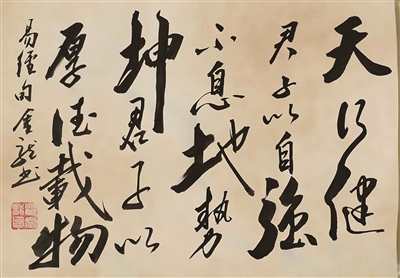 天行健
君子以自強
不息地勢
坤君子以
厚德載物
易經句金龍书